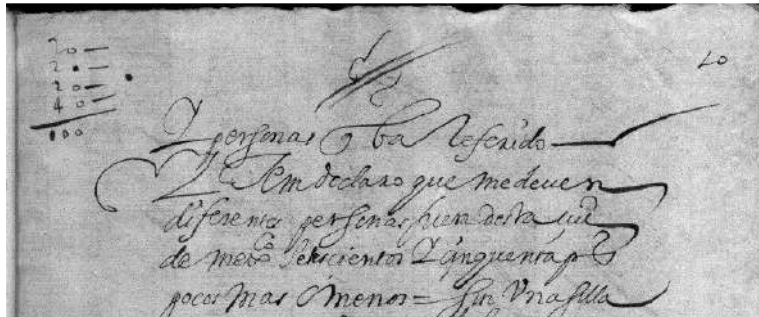 20
2
20
40
100
20
Y personas q ba Referido
Ytem declaro que me deven
diferentes personas fuera desta ciud
de mexco seiscientos Y cinquenta ps
pocos mas o menos = sin Una silla